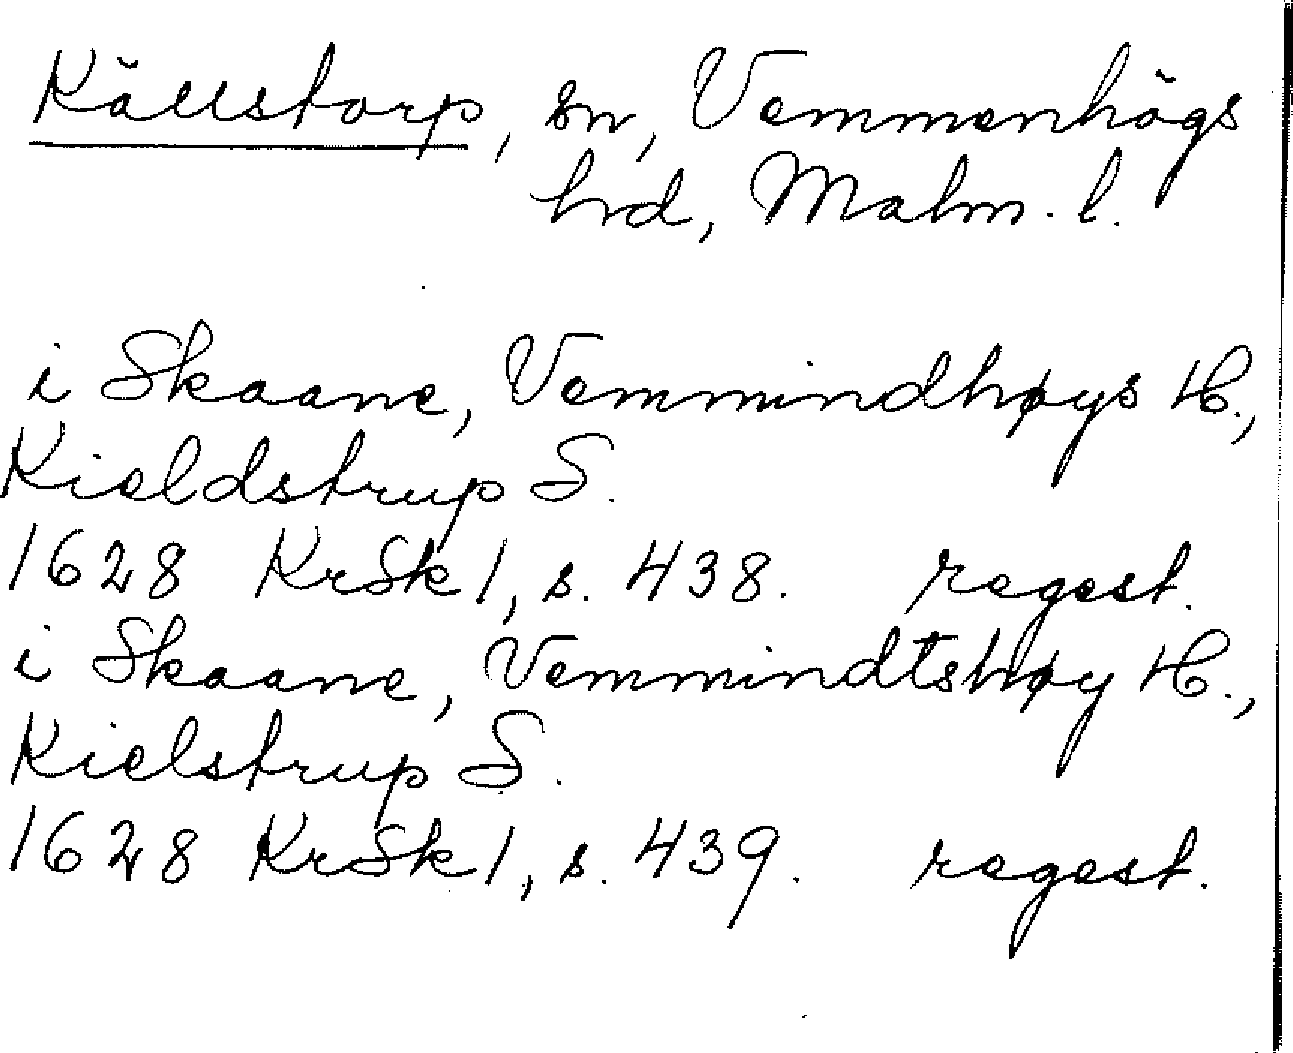 Källstorp, sn, Vemmenhögs
hrd, Malm. l.
i Skaane, Vemmindhøys H.,
Kieldstrup S.
1628 KrSk 1, s. 438. regest.
i Skaane, Vemmindtshøy H.,
Kielstrup S.
1628 KrSk 1, s. 439. regest.